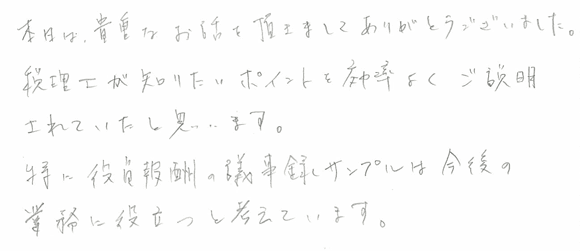 本日は、貴重なお話を頂きましてありがとうございました。
税理士が知りたいポイントを効率よくご説明
されていたと思います。
特に役員報酬の議事録サンプルは今後の
業務に役立つと考えています。